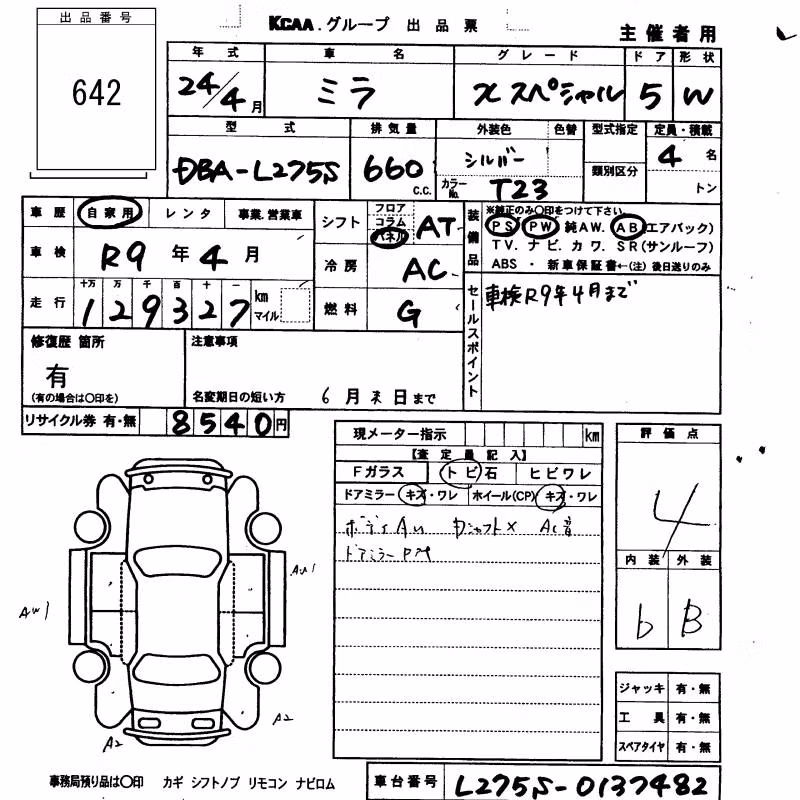 出品番号
642
KCAA.グループ 出品票
主催者用
年式 車名 グレード ドア 形状
24/4月 ミラ X スペシャル 5 W
型式 排気量 外装色 色替 型式指定 定員・積載
DBA-L275S 660 c.c. シルバー 類別区分 4名
カラーNo. T23 トン
車歴 自家用 レンタ 事業.営業車
車検 R9年4月
走行 十万 万 千 百 十 一
129327 km マイル
シフト フロア コラム パネル AT
冷房 AC
燃料 G
装備品
※純正のみ〇印をつけて下さい
PS PW 純AW. AB エアバック)
TV. ナビ. カワ. SR(サンルーフ)
ABS ・ 新車保証書←(注) 後日送りのみ
セールスポイント
車検R9年4月まで
修復歴 箇所
有
(有の場合は〇印を)
注意事項
名変期日の短い方 6月末日まで
リサイクル券 有・無 8540円
現メーター指示 km
【査定員記入】
Fガラス トビ石 ヒビワレ
ドアミラー キズ・ワレ ホイール(CP) キズ・ワレ
ボディAU Dシャフト× AC音
ドアミラーP
評価点
4
内装 外装
b B
AW1
AU1
A2
A2
ジャッキ 有・無
工具 有・無
スペアタイヤ 有・無
事務局預り品は〇印 カギ シフトノブ リモコン ナビロム
車台番号 L275S-0137482